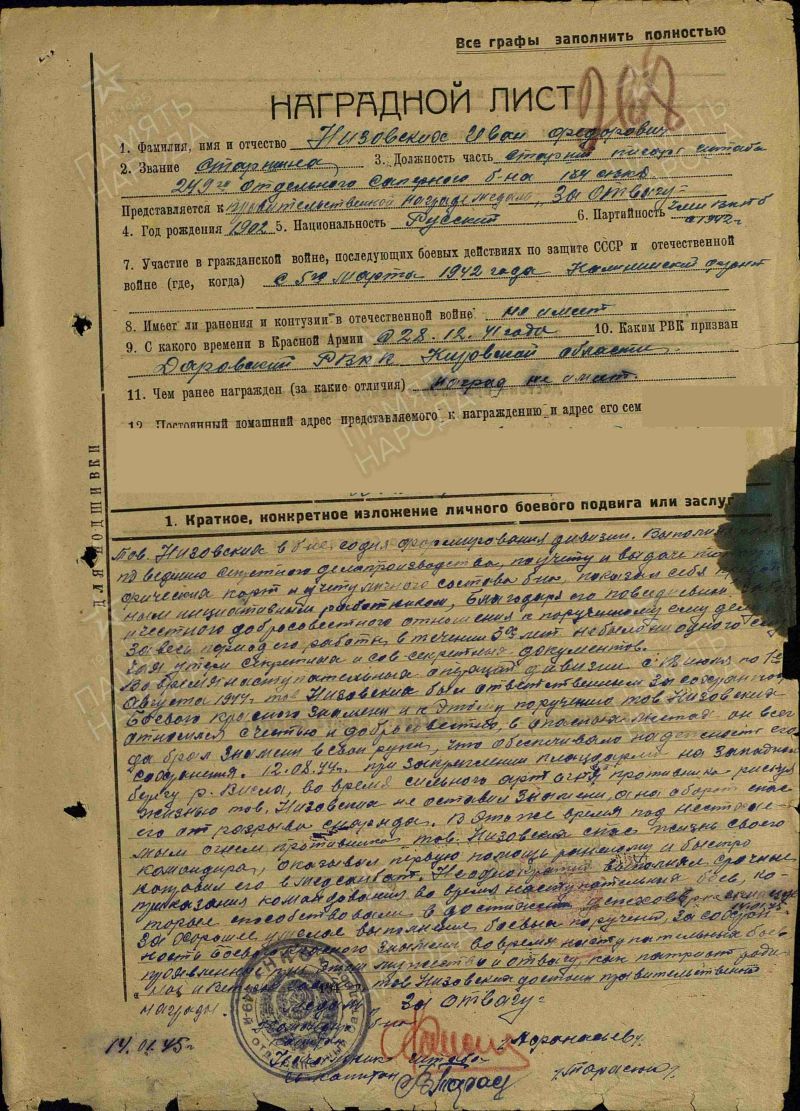 Все графы заполнить полностью
268
НАГРАДНОЙ ЛИСТ
1. Фамилия, имя и отчество Низовских Иван Федорович
2. Звание Старшина 3. Должность часть старший писарь штаба
249го отдельного саперного б-на
Представляется к правительственной награде медаль "За Отвагу"
4. Год рождения 1902 5. Национальность Русский 6. Партийность член ВКП б
с 1942 г
7. Участие в гражданской войне, последующих боевых действиях по защите СССР и отечественной
войне (где, когда) с 5го марта 1942 года Калининский фронт
8. Имеет ли ранения и контузии в отечественной войне не имеет
9. С какого времени в Красной Армии с 28.12.41 года 10. Каким РВК призван
Даровский РВК Кировской области
11. Чем ранее награжден (за какие отличия) наград не имеет
12. Постоянный домашний адрес представляемого к награждению и адрес его сем
ДЛЯ ПОДШИВКИ
1. Краткое, конкретное изложение личного боевого подвига или заслуг
Тов. Низовских в б-не со дня формирования дивизии.
по ведению секретного делопроизводства, по учету и выдаче
фических карт и учету личного состава б-на, показал себя
ным инициативным работником, благодаря его повседневной
и честного добросовестного отношения к порученному ему делу
за весь период его работы в течении 3х лет не было ни одного
чая утери секретных и сов-секретных документов.
Во время наступательных операций дивизии с 18 июня по 1е
Августа 1944г. тов Низовских был ответственным за сохранность
Боевого красного знамени и к этому поручению тов Низовских
относился с честью и добросовестно, в опасных местах он всег
да брал знамени в свои руки, что обеспечивало надежность его
сохранения. 12.08.44г. при закреплении плацдарма на западном
берегу р. Висла, во время сильного арт огня противника рискуя
жизнью тов. Низовских не оставил знамени, а наоборот спас
его от разрыва снаряда. В это же время под
мым огнем противника тов. Низовских спас жизнь своего
командира, оказывал первую помощь раненому и быстро
направил его в медсанбат. Неоднократно выполнял срочные
приказания командования во время наступательных боев, ко-
торые способствовали в достижении успехов
За хорошее умелое выполнение боевых поручений, за сохран
ности Боевого красного знамени во время наступательных боев
проявленную при этом мужество и отвагу как патриот роди
тов Низовских достоин правительственной
награды "За отвагу"
Командир б-на
капитан /Афанасьев/
14.01.45г Начальник штаба
ст. капитан /Тарасюк/
ПАМЯТЬ НАРОДА